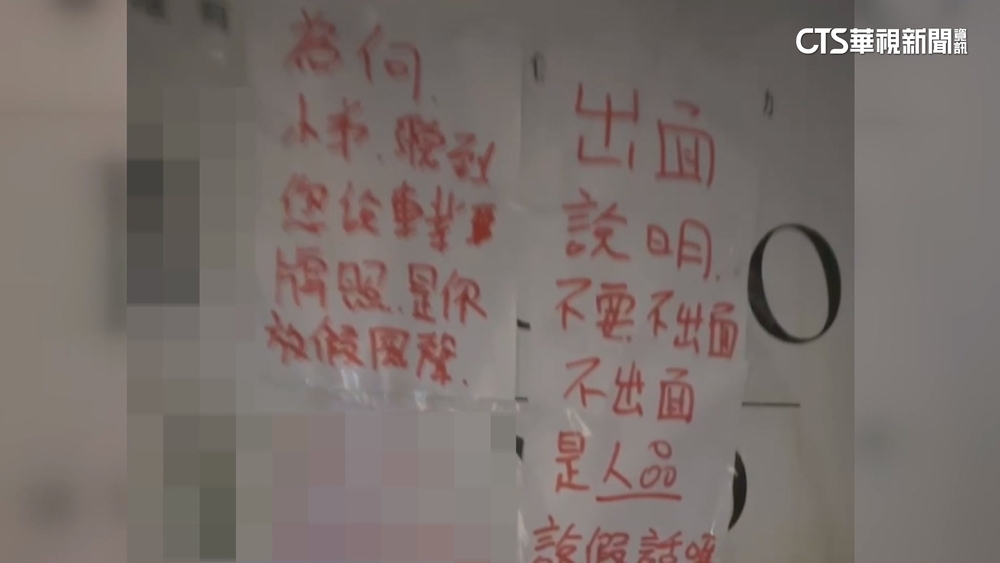 CTS華視新聞資訊
為何
小弟.聽到
您說車業
牌照.是你
放假風聲.
出面
說明.
不要不出面
不出面
是人品
說假話嗎